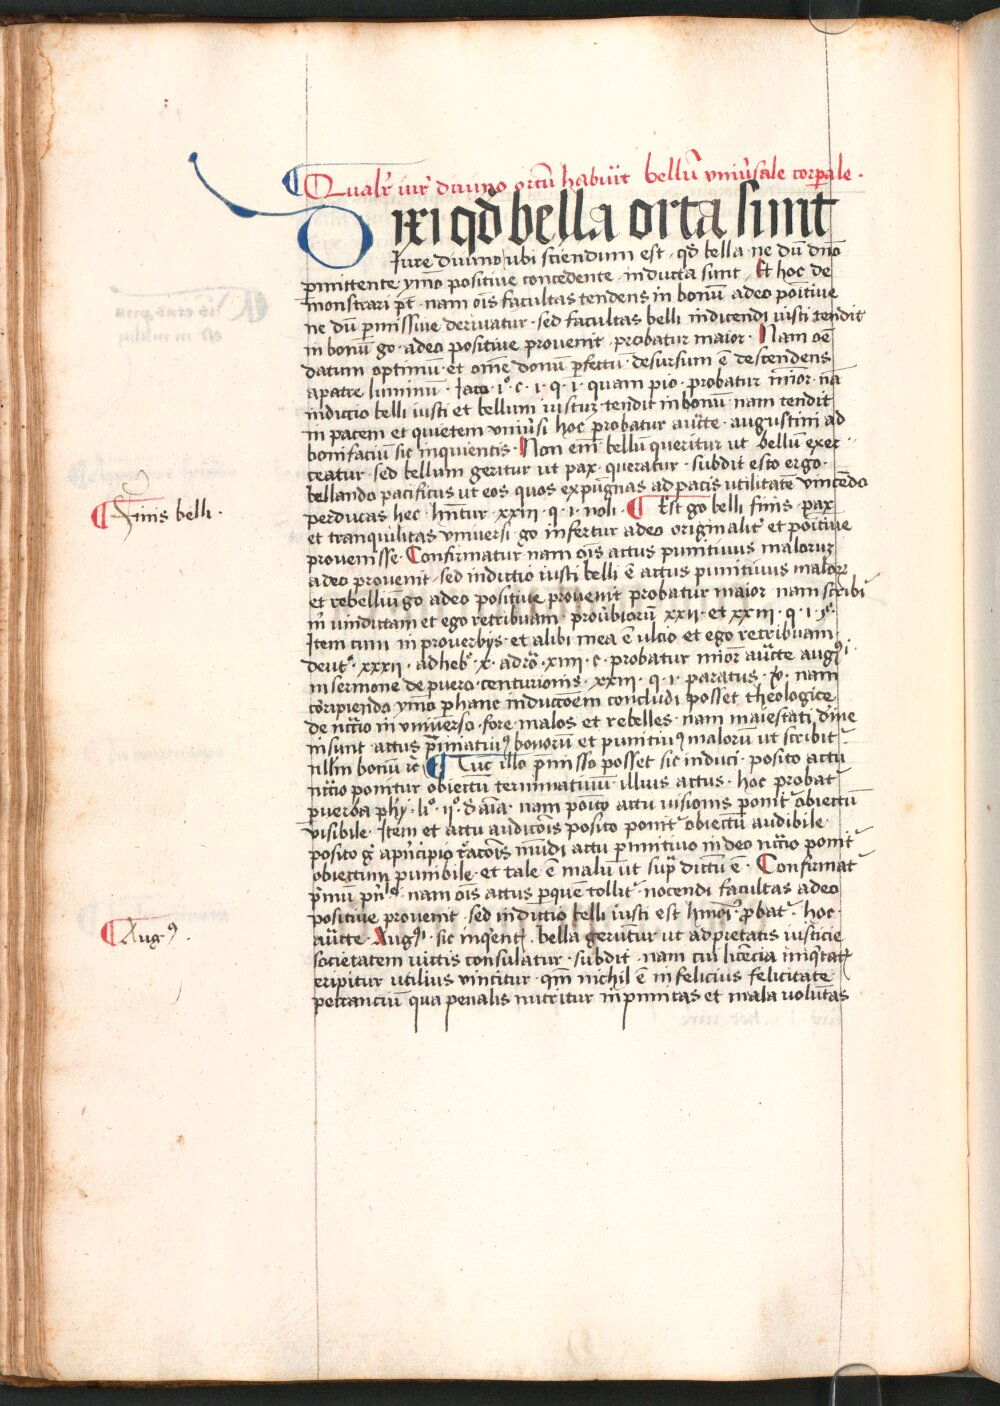 Qualr̄ iur̄ diuino ortū habuit bellū vniu̓sale corꝑale .
Dixi qd̄ bella orta sunt
Iure diuino ubi sciendum est · qd̄ bella ne dū dn̄o
ꝑmittente ymō positiue concedente · inducta sunt · Et hoc de
monstrari pt̄ · nam oīs facultas tendens in bonū adeo poītiue
ne dū ꝑmissiue deriuatur · sed facultas belli indicendi iusti tendit
in bonū go · adeo positiue prouenit · probatur maior · Nam oē
datum optimū · et om̄e donū ꝑfectū · desursum ē descendens
apatre luminū · Iaco · i° · c · i · q · i · quam pio · probatur mīor · nā
indictio belli iusti et bellum iustuꝫ tendit in bonū · nam tendit
in pacem et quietem vniu̓si hoc probatur auct̄e · augustini ad
bonifaciū sic inquientis · Non em̄ bellū queritur ut bellū exer
ceatur · sed bellum geritur ut pax queratur · subdit esto ergo ·
bellando pacificus ut eos quos expugnas ad pacis utilitatē vincēdo
perducas hec · hn̄tur · xxiii · q · i · noli · Est go belli finis · pax
et tranquilitas vniuersi · go infertur adeo originalit̄ et poītiue
prouenisse · Confirmatur · nam oīs actus punitiuus maloruꝫ
a deo prouenit · sed indictio iusti belli ē actus punitiuus maloꝝ
et rebelliū go adeo positiue prouenit probatur maior nam scribit̄
in vindictam et ego retribuam · prou̓biorū xxii · et xxiii · q · i ·
Item cum in prouerbijs · et alibi mea ē ulcio et ego retribuam
deut° · xxxii · ad heb̓ · x · ad ro · xiiii · c · probatur mīor auct̄e augꝰ
in sermone de puero · centurionis · xxiii · q · i · paratus · nam
corripiendo ymō ꝑ hanc inductōem concludi posset theologice
de nc̄cīo in vniuerso · fore · malos et rebelles · nam maiestati diīe
insunt actus p̄miatiuꝰ bonorū et punitiuꝰ malorū ut scribit̄
nllm bonū ir̄ Tuc illo p̄misso posset sic induci · posito actu
nc̄cīo ponitur obiectū terminatiuū illius actus · hoc probat̄
ꝑ uerba phy̓ · li° · ii° · d̓ aīa · nam poīto actu uisionis ponit̄ obiectū
visibile · Item et actu audicōis posito ponit̄ obiectū audibile ·
posito g̓ apn̓cipio c̄acōis mūdi actu punitiuo in deo nc̄cīo ponit̄
obiectum punibile · et tale ē malū ut sup̄ dictū ē · Confirmat̄
p̓mū pn̓ · nam oīs actus ꝑ quem tollit̄ · nocendi facultas adeo
positiue prouenit · sed indictio belli iusti est hmōi · ꝓbat̄ · hoc ·
auct̄e · Augꝰ · sic inq̓ent̄ · bella geruntur ut ad pietatis iusticie
societatem uictis consulatur · subdit · nam cui licēcia iniq̓tat̄
eripitur utilius vincitur · qm̄ nichil ē infelicius felicitate ·
peccanciū qua penalis nutritur inpunitas et mala voluntas
Finis belli ·
Augꝰ ·